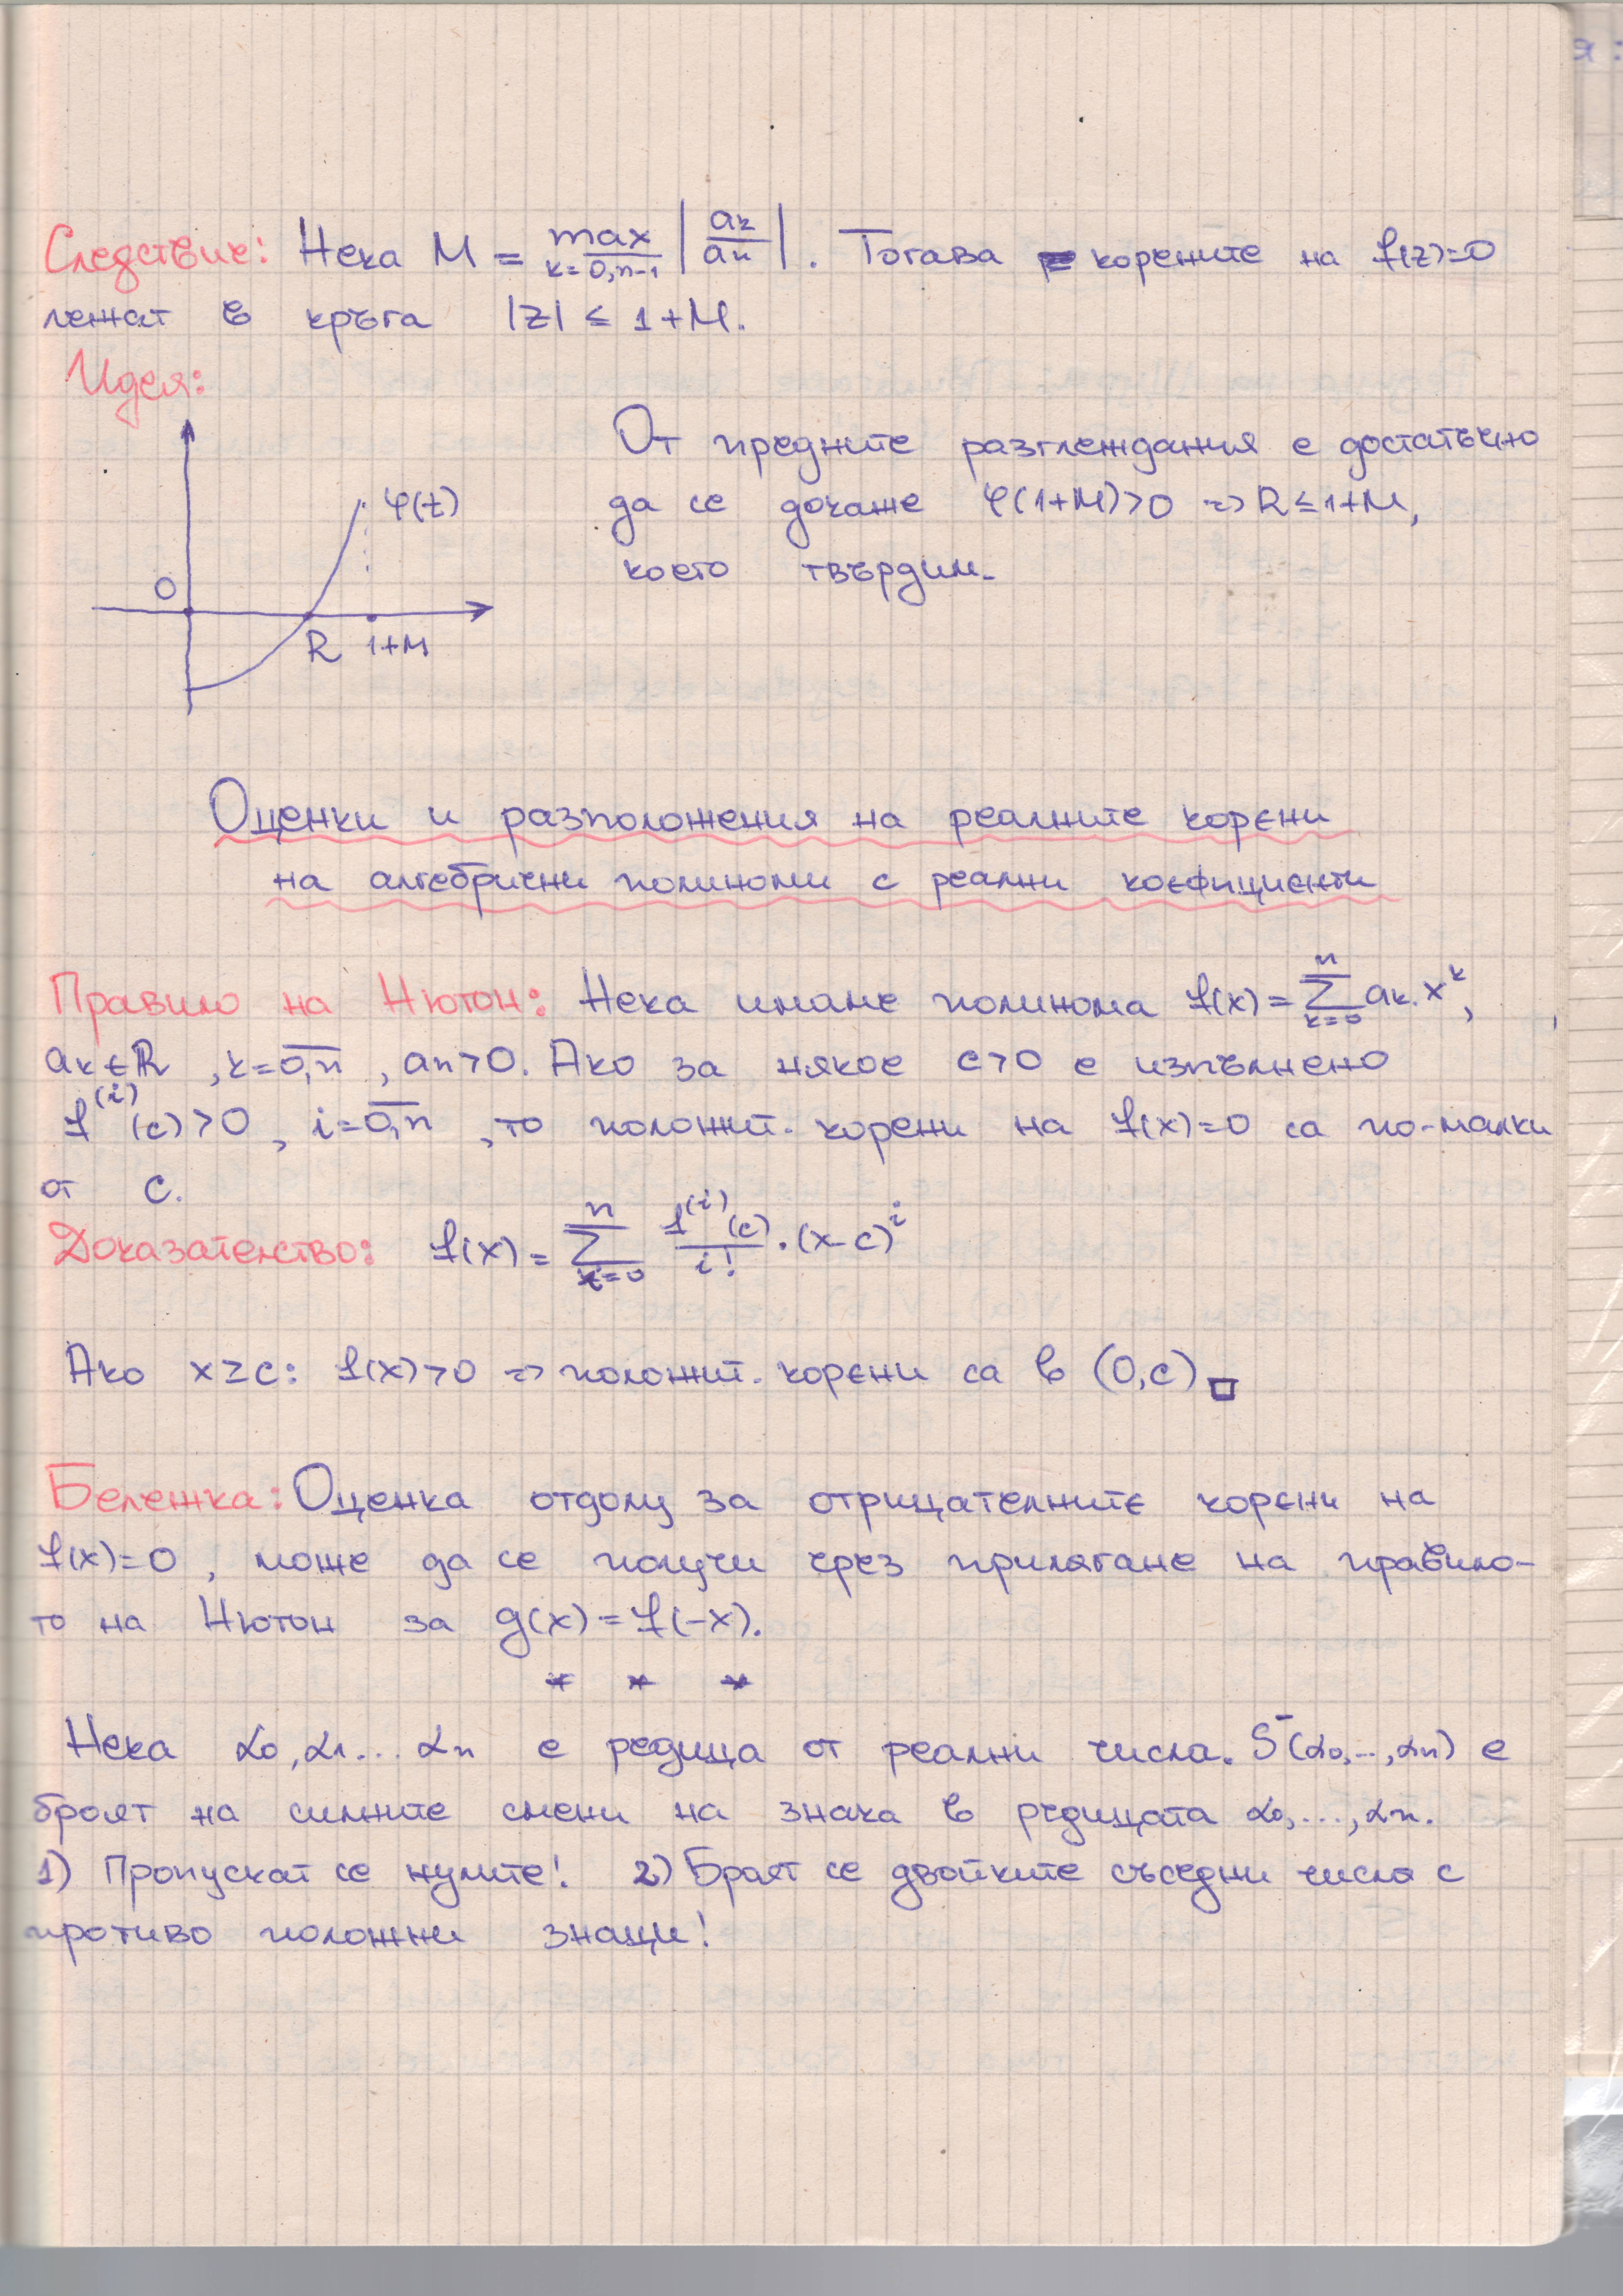 Следствие: Нека M = max_{k=0,n-1} |a_k/a_n|. Тогава корените на f(z)=0
лежат в кръга |z| ≤ 1+M.
Идея:
От предните разглеждания е достатъчно
да се докаже φ(1+M)>0 => R≤1+M,
което твърдим.
φ(t)
O
R 1+M
Оценки и разположения на реалните корени
на алгебрични полиноми с реални коефициенти
Правило на Нютон: Нека имаме полинома f(x) = ∑_{k=0}^{n} a_k.x^k,
a_k∈ℝ, k=\overline{0,n}, a_n>0. Ако за някое c>0 е изпълнено
f^{(i)}(c)>0, i=\overline{0,n}, то положит. корени на f(x)=0 са по-малки
от c.
Доказателство: f(x) = ∑_{i=0}^{n} f^{(i)}(c)/i! . (x-c)^i
Ако x≥c: f(x)>0 => положит. корени са в (0,c) □
Бележка: Оценка отдолу за отрицателните корени на
f(x)=0, може да се получи чрез прилагане на правило-
то на Нютон за g(x)=f(-x).
* * *
Нека α_0, α_1... α_n е редица от реални числа. S^-(α_0,...,α_n) е
броят на силните смени на знака в редицата α_0,...,α_n.
1) Пропускат се нулите! 2) Броят се двойките съседни числа с
противо положни знаци!